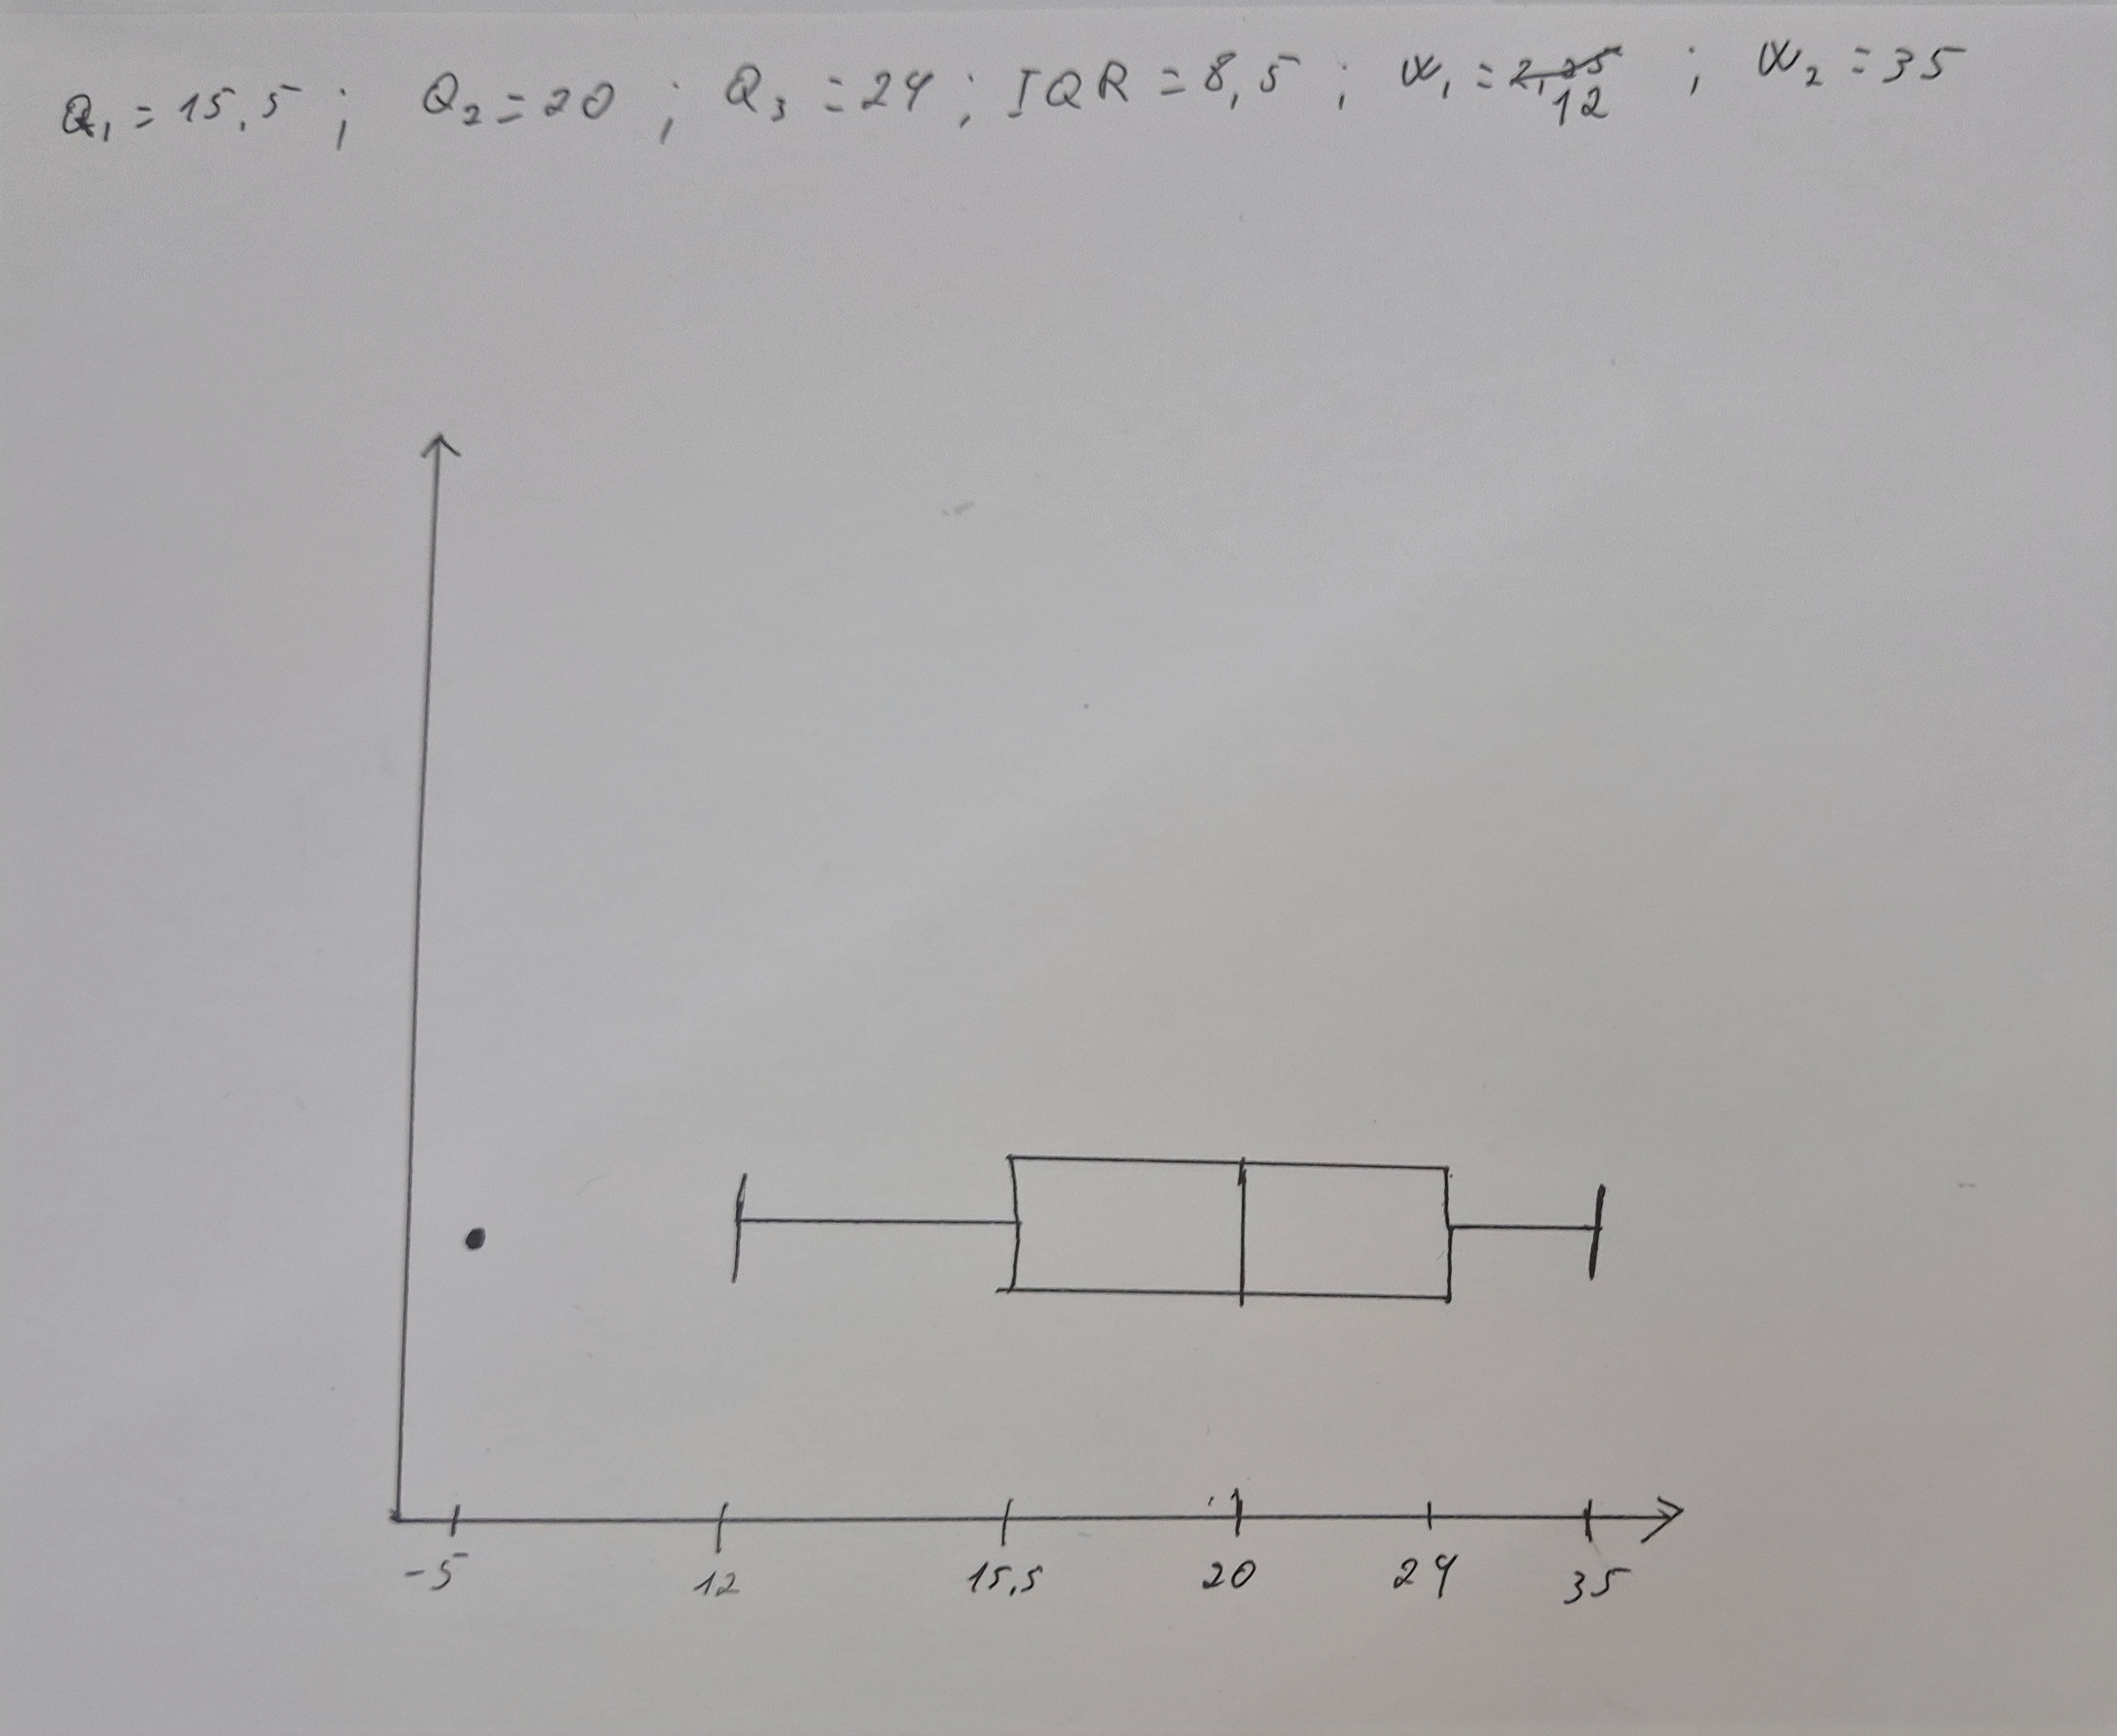 Q₁ = 15,5 ; Q₂ = 20 ; Q₃ = 24 ; IQR = 8,5 ; W₁ = 2,25 ; W₂ = 35
12
-5 12 15,5 20 24 35